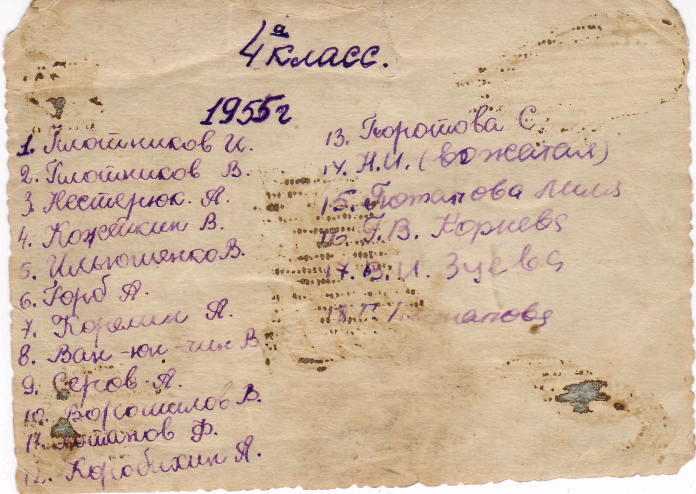 4а класс.
1955г
1. Плотников И.
2. Плотников В.
3. Нестерюк. А.
4. Кожейкин В.
5. Ильюшенко В.
6. Горб А.
7. Корелин А.
8. Ван-юн-чин В.
9. Серов А.
10. Ворошилов В.
11. Потапов Ф.
12. Коробихин А.
13. Коротова С.
14. Н.И. (вожатая)
15. Потапова Лиля
16. Г.В. Корнева
17. В.И. Зуева
18. П